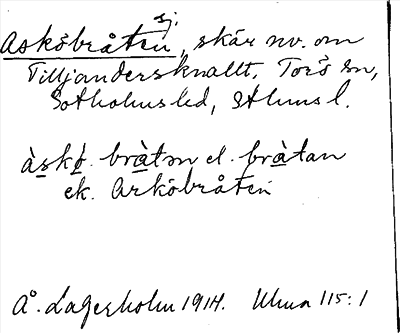 Asköbråten, skär nv. om
Tilljandersknallt, Torö sn,
Sotholms hd, Sthlms l.
àskö. bràtn el. bràtan
ek. Arköbråten
Å. Lagerholm 1914. Uhua 115:1